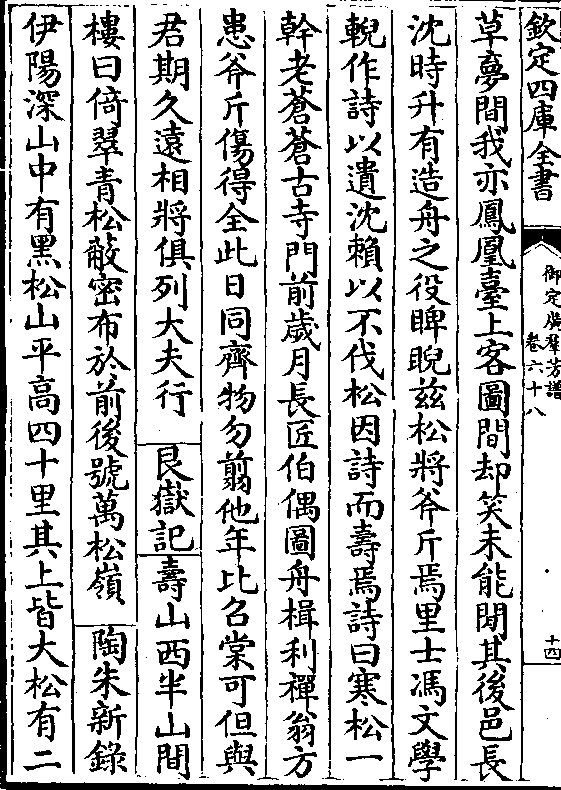 欽定四庫全書
御定廣羣芳譜
卷六十八
十四
草夢間我亦鳳凰臺上客圖間却笑未能閒其後邑長
沈時升有造舟之役睥睨兹松將斧斤焉里士馮文學
輗作詩以遺沈賴以不伐松因詩而壽焉詩曰寒松一
幹老蒼蒼古寺門前歲月長匠伯偶圖舟楫利禪翁方
患斧斤傷得全此日同齊物勿翦他年比召棠可但與
君期久遠相將俱列大夫行 艮嶽記 壽山西半山間
樓曰倚翠青松蔽密布於前後號萬松嶺 陶朱新錄
伊陽深山中有黑松山平高四十里其上皆大松有二